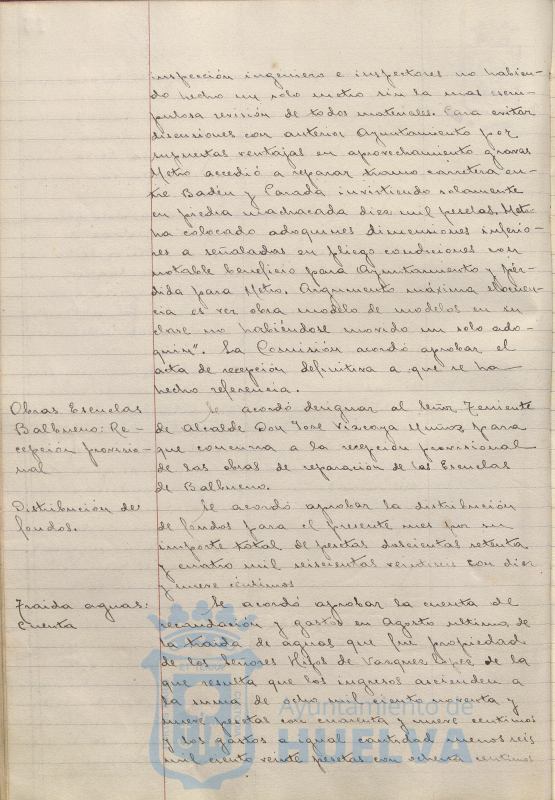 inspección ingeniero e inspectores no habien-
do hecho un solo metro sin la mas escru-
pulosa revisión de todos materiales. Para evitar
discusiones con anterior Ayuntamiento por
supuestas ventajas en aprovechamiento gravas
Metro accedió a reparar tramo carretera en-
tre Badén y Parada invirtiendo solamente
en piedra machacada diez mil pesetas. Metro
ha colocado adoquines dimensiones inferio-
res a señaladas en pliego condiciones con
notable beneficio para Ayuntamiento y pér-
dida para Metro. Argumento máxima elocuen-
cia es ver obra modelo de modelos en su
clase no habiéndose movido un solo ado-
quin". La Comisión acordó aprobar el
acta de recepción definitiva a que se ha
hecho referencia.
Obras Escuelas
Balbueno: Re-
cepción provisio-
nal
Se acordó designar al Señor Teniente
de Alcalde Don José Vizcaya Muñoz para
que concurra a la recepción provisional
de las obras de reparación de las Escuelas
de Balbueno.
Distribución de
fondos.
Se acordó aprobar la distribución
de fondos para el presente mes por su
importe total de pesetas doscientas setenta
y cuatro mil seiscientas veintiseis con diez
y nueve céntimos
Traida aguas:
Cuenta
Se acordó aprobar la cuenta de
recaudación y gastos en Agosto ultimo de
la traida de aguas que fué propiedad
de los Señores Hijos de Vazquez Lopez, de la
que resulta que los ingresos ascienden a
la suma de ocho mil ciento noventa y
nueve pesetas con cuarenta y nueve centimos
y los gastos a igual cantidad menos seis
mil ciento veinte pesetas con ochenta centimos
Ayuntamiento de
HUELVA